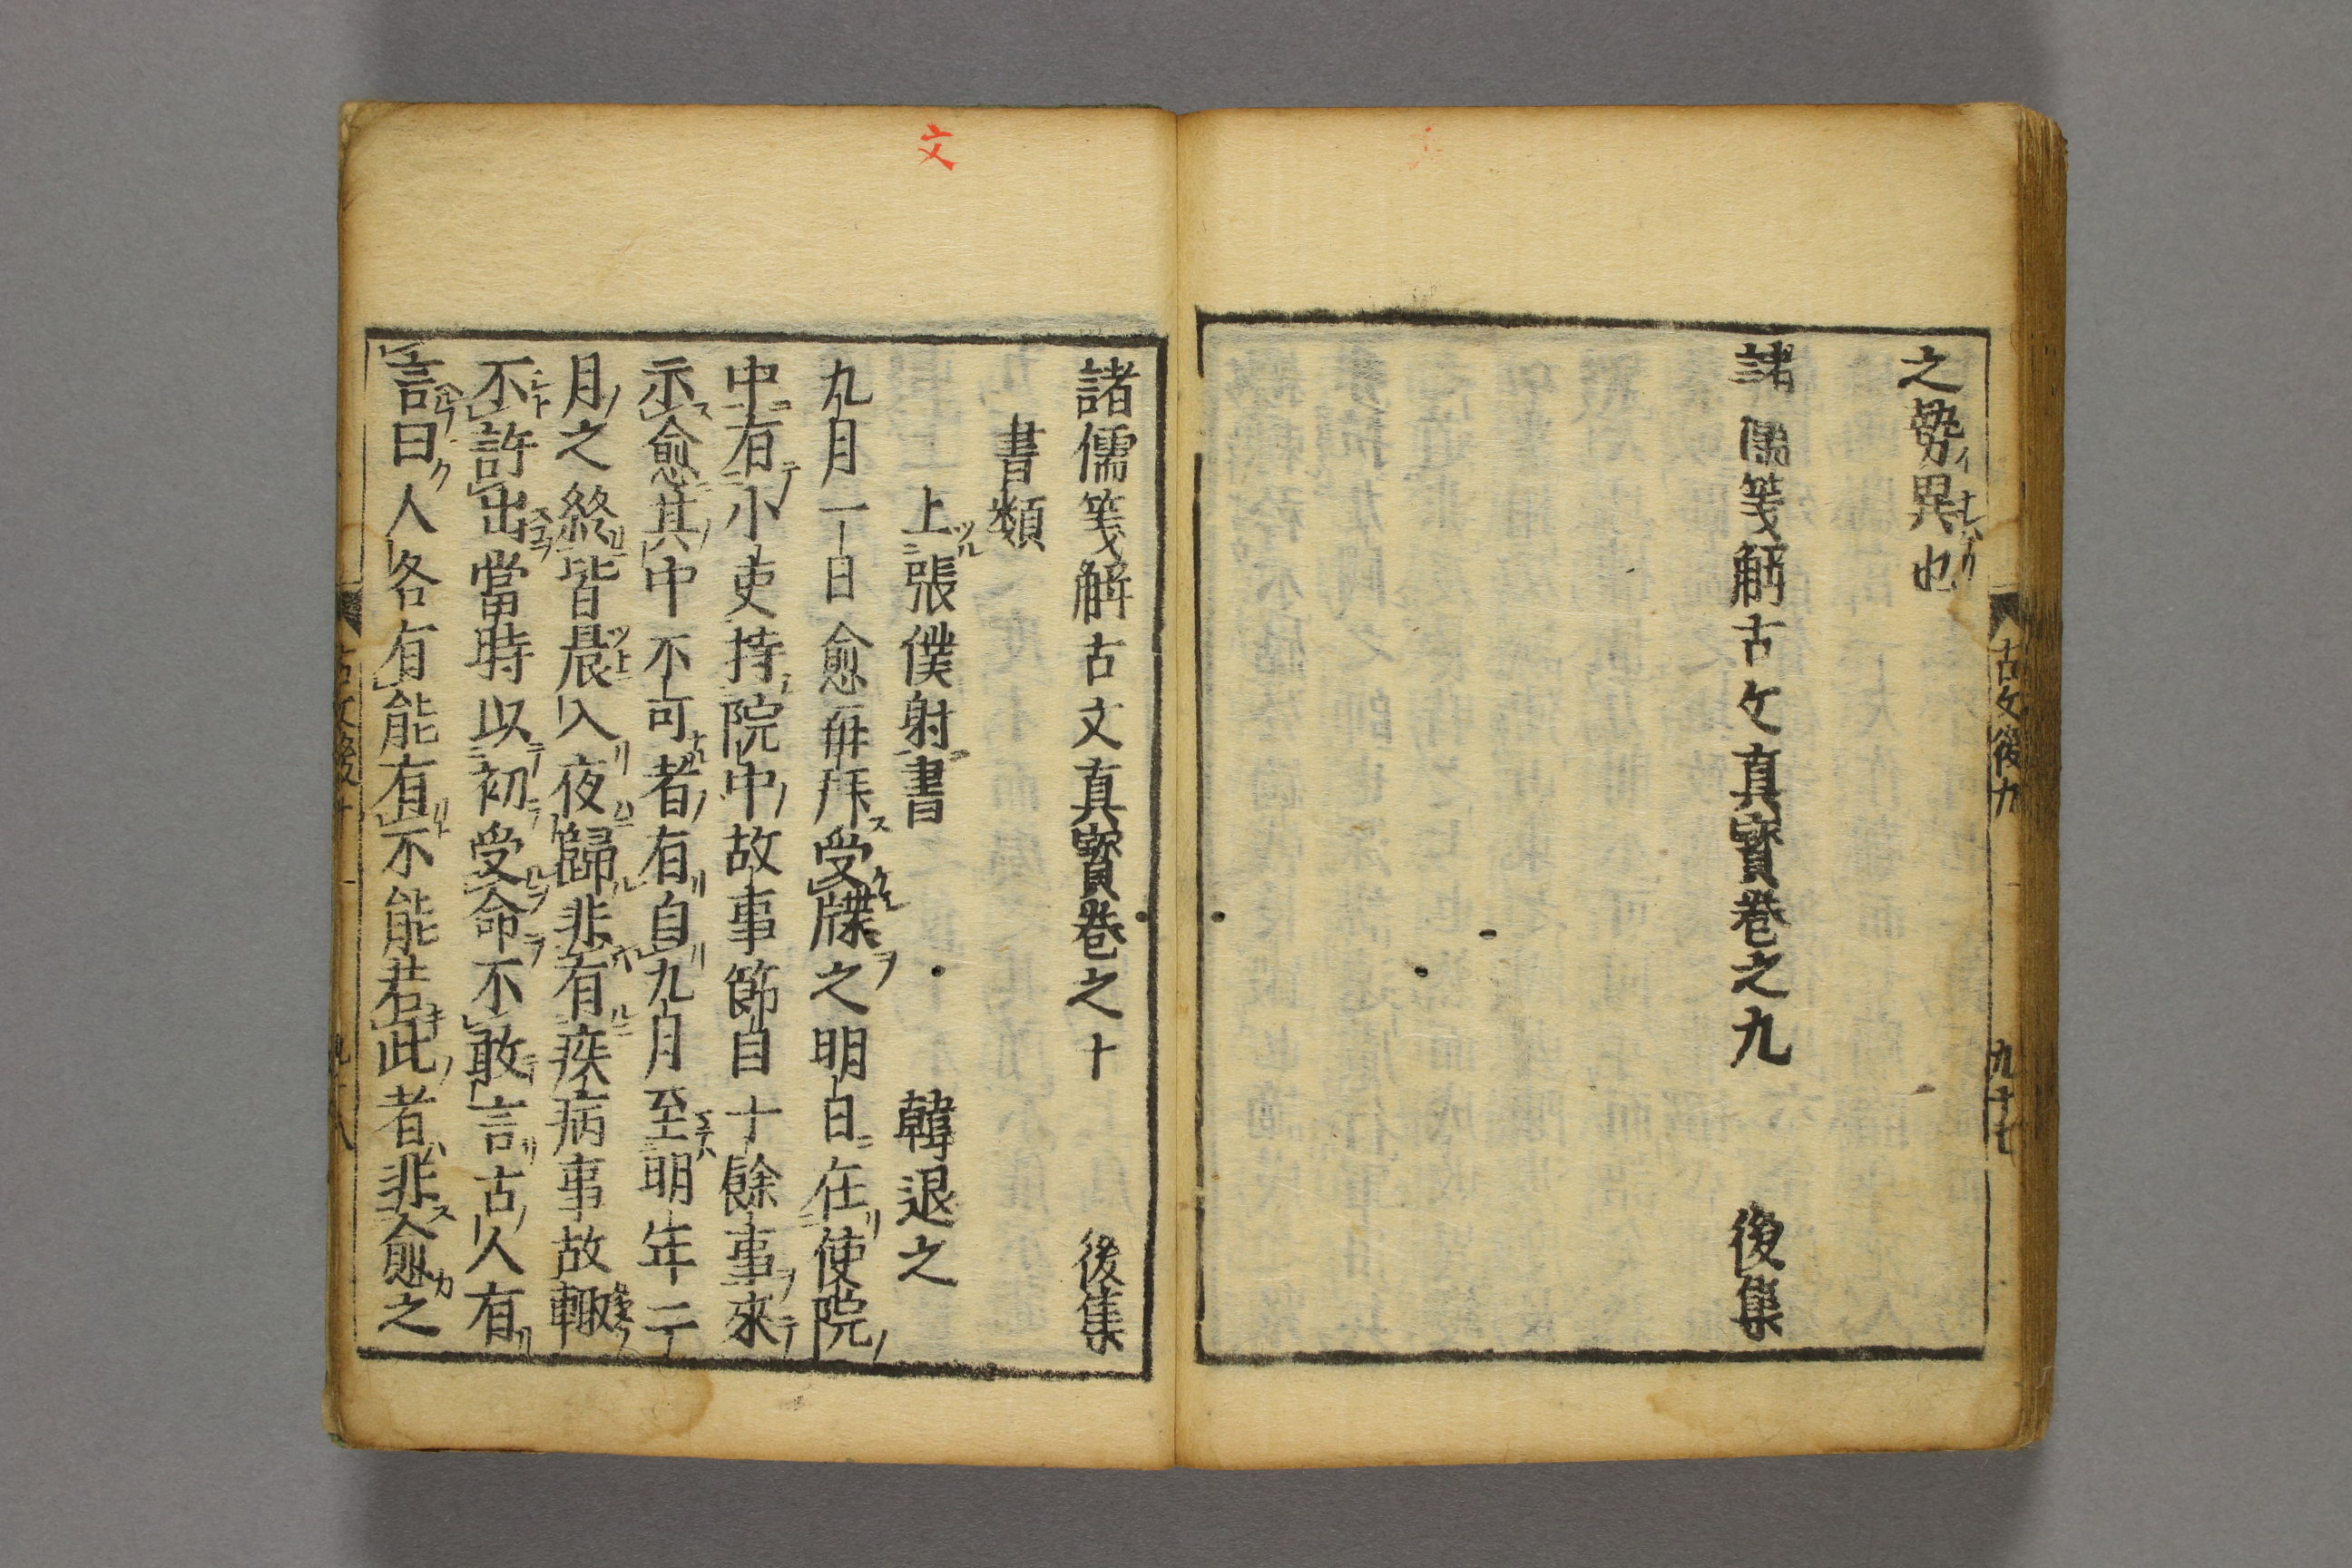 之勢異也
諸儒箋解古文真寳卷之九　後集
古文後九　九十七
文
諸儒箋解古文真寳卷之十　後集
書類
上張僕射書　韓退之
九月一日愈再拜受牒之明日在使院
中有小吏持院中故事節目十餘事來
示愈其中不可者有自九月至明年二
月之終皆晨入夜歸非有疾病事故輙
不許出當時以初受命不敢言古人有
言曰人各有能有不能若此者非愈之
古文後十　九十八